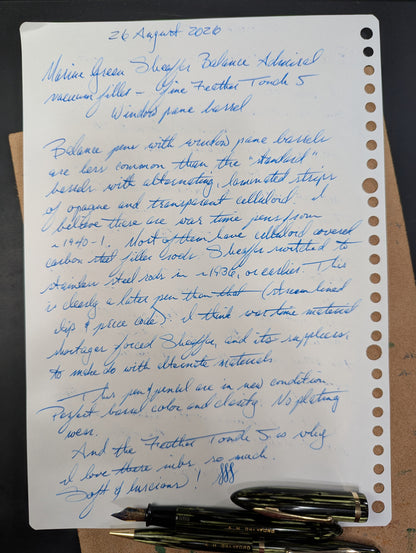 26 August 2026
Marine Green Sheaffer Balance Admiral
vacuum filler – fine Feather Touch 5
Window pane barrel
Balance pens with window pane barrels
are less common than the "standard"
barrels with alternating, laminated strips
of opaque and transparent celluloid. I
believe these are war time pens from
~1940-1. Most of them have celluloid covered
carbon steel filler rods. Sheaffer switched to
stainless steel rods in ~1936, or earlier. This
is clearly a later pen than that (stream lined
clip & price code). I think war time material
shortages forced Sheaffer, and its suppliers,
to make do with alternate materials.
This pen & pencil are in new condition.
Perfect barrel color and clarity. No plating
wear.
And the Feather Touch 5 is why
I love these nibs so much.
Soft & luscious!
BRADFORD
H. BRADFORD